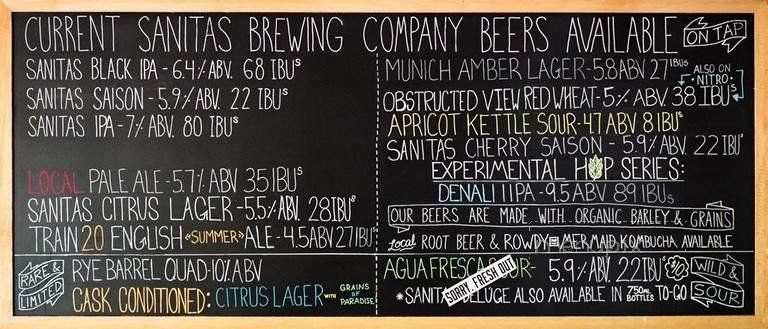 CURRENT SANITAS BREWING COMPANY BEERS AVAILABLE ON TAP
SANITAS BLACK IPA - 6.4% ABV. 68 IBUs
SANITAS SAISON - 5.9% ABV. 22 IBUs
SANITAS IPA - 7% ABV. 80 IBUs
LOCAL PALE ALE - 5.7% ABV 35 IBUs
SANITAS CITRUS LAGER - 5.5% ABV. 28 IBUs
TRAIN 20 ENGLISH «SUMMER» ALE - 4.5 ABV 27 IBUs
RARE & LIMITED
RYE BARREL QUAD - 10% ABV
CASK CONDITIONED: CITRUS LAGER WITH GRAINS OF PARADISE
MUNICH AMBER LAGER - 5.8 ABV 27 IBUs
ALSO ON NITRO
OBSTRUCTED VIEW RED WHEAT - 5% ABV. 38 IBUs
APRICOT KETTLE SOUR - 4.7 ABV 8 IBUs
SANITAS CHERRY SAISON - 5.9% ABV. 22 IBUs
EXPERIMENTAL HOP SERIES:
DENALI IIPA - 9.5 ABV 89 IBUs
OUR BEERS ARE MADE WITH ORGANIC BARLEY & GRAINS
Local ROOT BEER & ROWDY MERMAID KOMBUCHA AVAILABLE
AGUA FRESCA UR - 5.9% ABV. 22 IBUs
SORRY, FRESH OUT
WILD & SOUR
*SANIT DELUGE ALSO AVAILABLE IN 750ml BOTTLES TO-GO